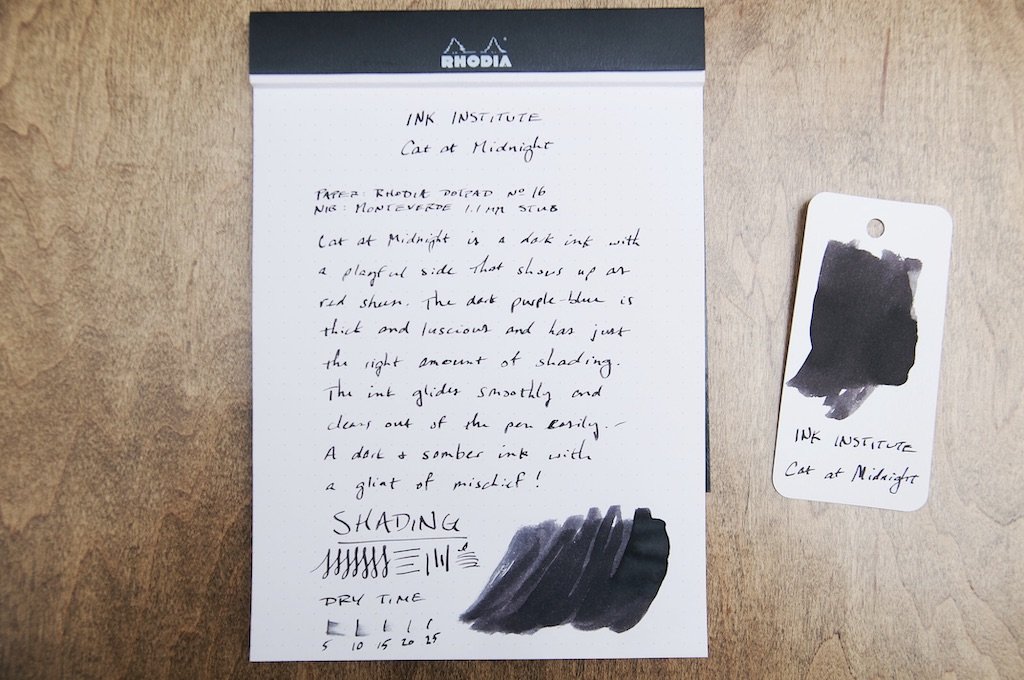 RHODIA
INK INSTITUTE
Cat at Midnight
PAPER: RHODIA DOTPAD Nº 16
NIB: MONTEVERDE 1.1 MM STUB
Cat at Midnight is a dark ink with
a playful side that shows up as
red sheen. The dark purple-blue is
thick and luscious and has just
the right amount of shading.
The ink glides smoothly and
cleans out of the pen easily.–
A dark & somber ink with
a glint of mischief!
SHADING
DRY TIME
5 10 15 20 25
INK INSTITUTE
Cat at Midnight